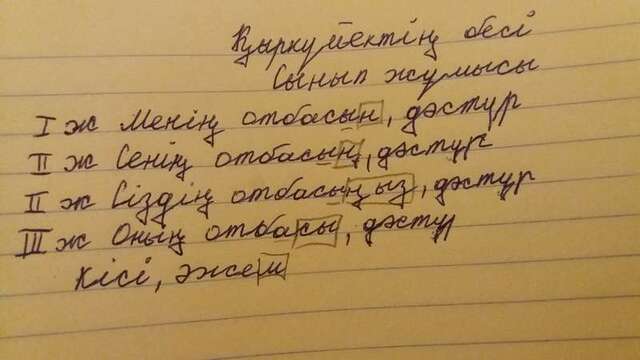 Қыркүйектің бесі
Сынып жұмысы
I ж Менің отбасын, дәстүр
II ж Сенің отбасың, дәстүр
II ж Сіздің отбасыңыз, дәстүр
III ж Оның отбасы, дәстүр
Кісі, әжем